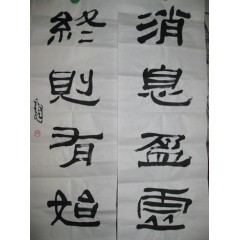 消息盈虛
終則有始